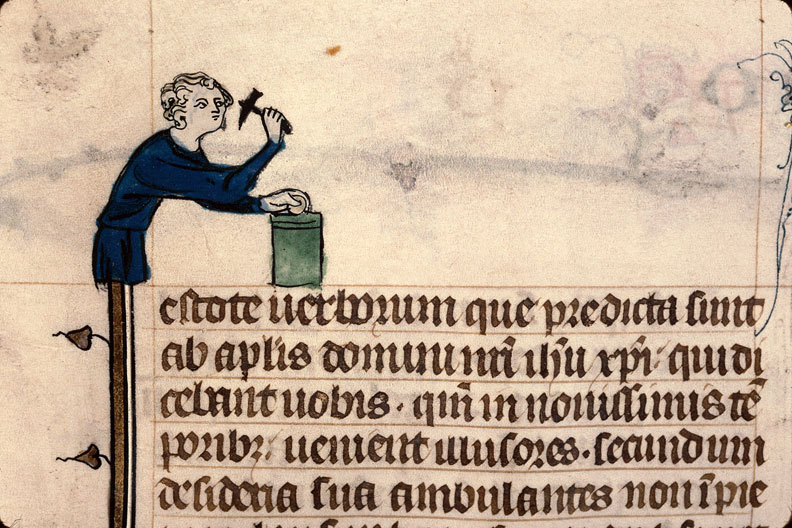 estote uerborum que predicta sunt
ab aplis domini nr̄i ih̄u xp̄i· qui di
cebant uobis· qm̄ in nouissimis tē
poribꝫ· uenient illusores· secundum
desideria sua ambulantes non ī pie